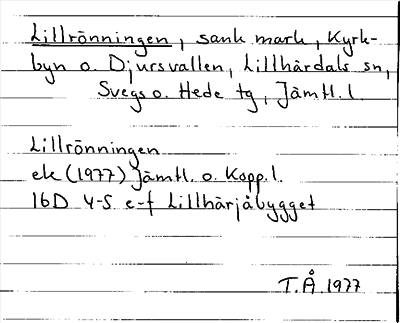 Lillrönningen, sank mark, Kyrk-
byn o. Djursvallen, Lillhärdals sn,
Svegs o. Hede tg, Jämtl. l.
Lillrönningen
ek (1977) Jämtl. o. Kopp. l.
16D 4-5 e-f Lillhärjåbygget
T.Å. 1977